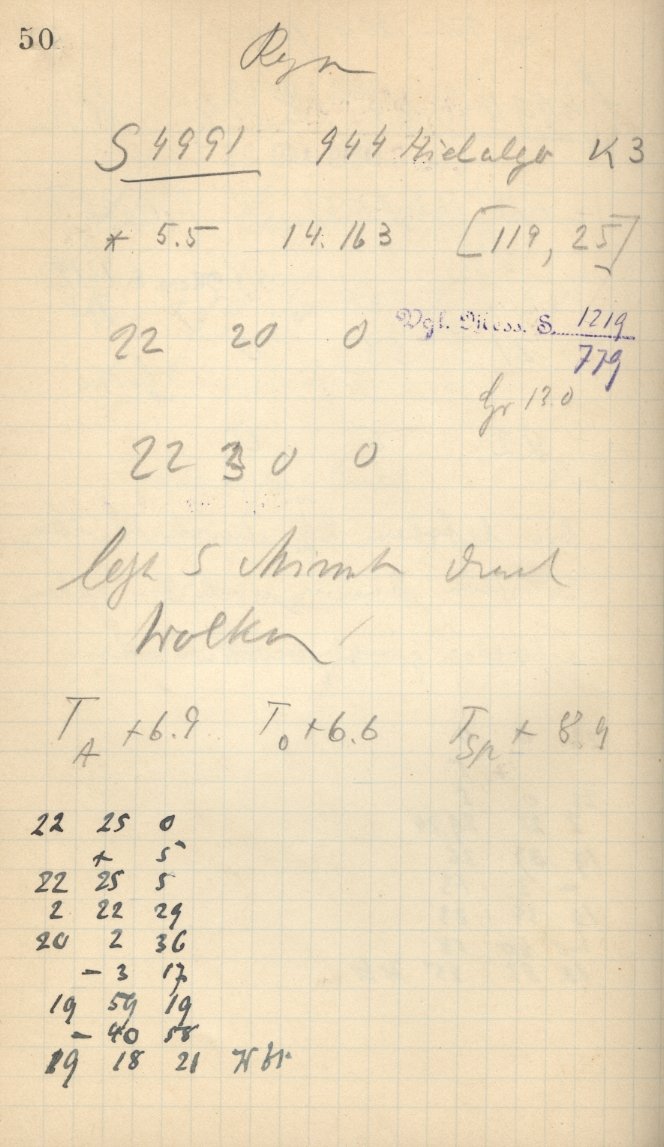 50
S 4991 944 Hidalgo K 3
* 5.5 14.163 [119, 25]
22 20 0 Vgl. Mess. S. 1219
779
Gr 13.0
22 30 0
5 Minuten durch
Wolken
T_A +6.9 T_o +6.6 T_Sp + 8.9
22 25 0
+ 5
22 25 5
2 22 29
20 2 36
- 3 17
19 59 19
- 40 58
19 18 21